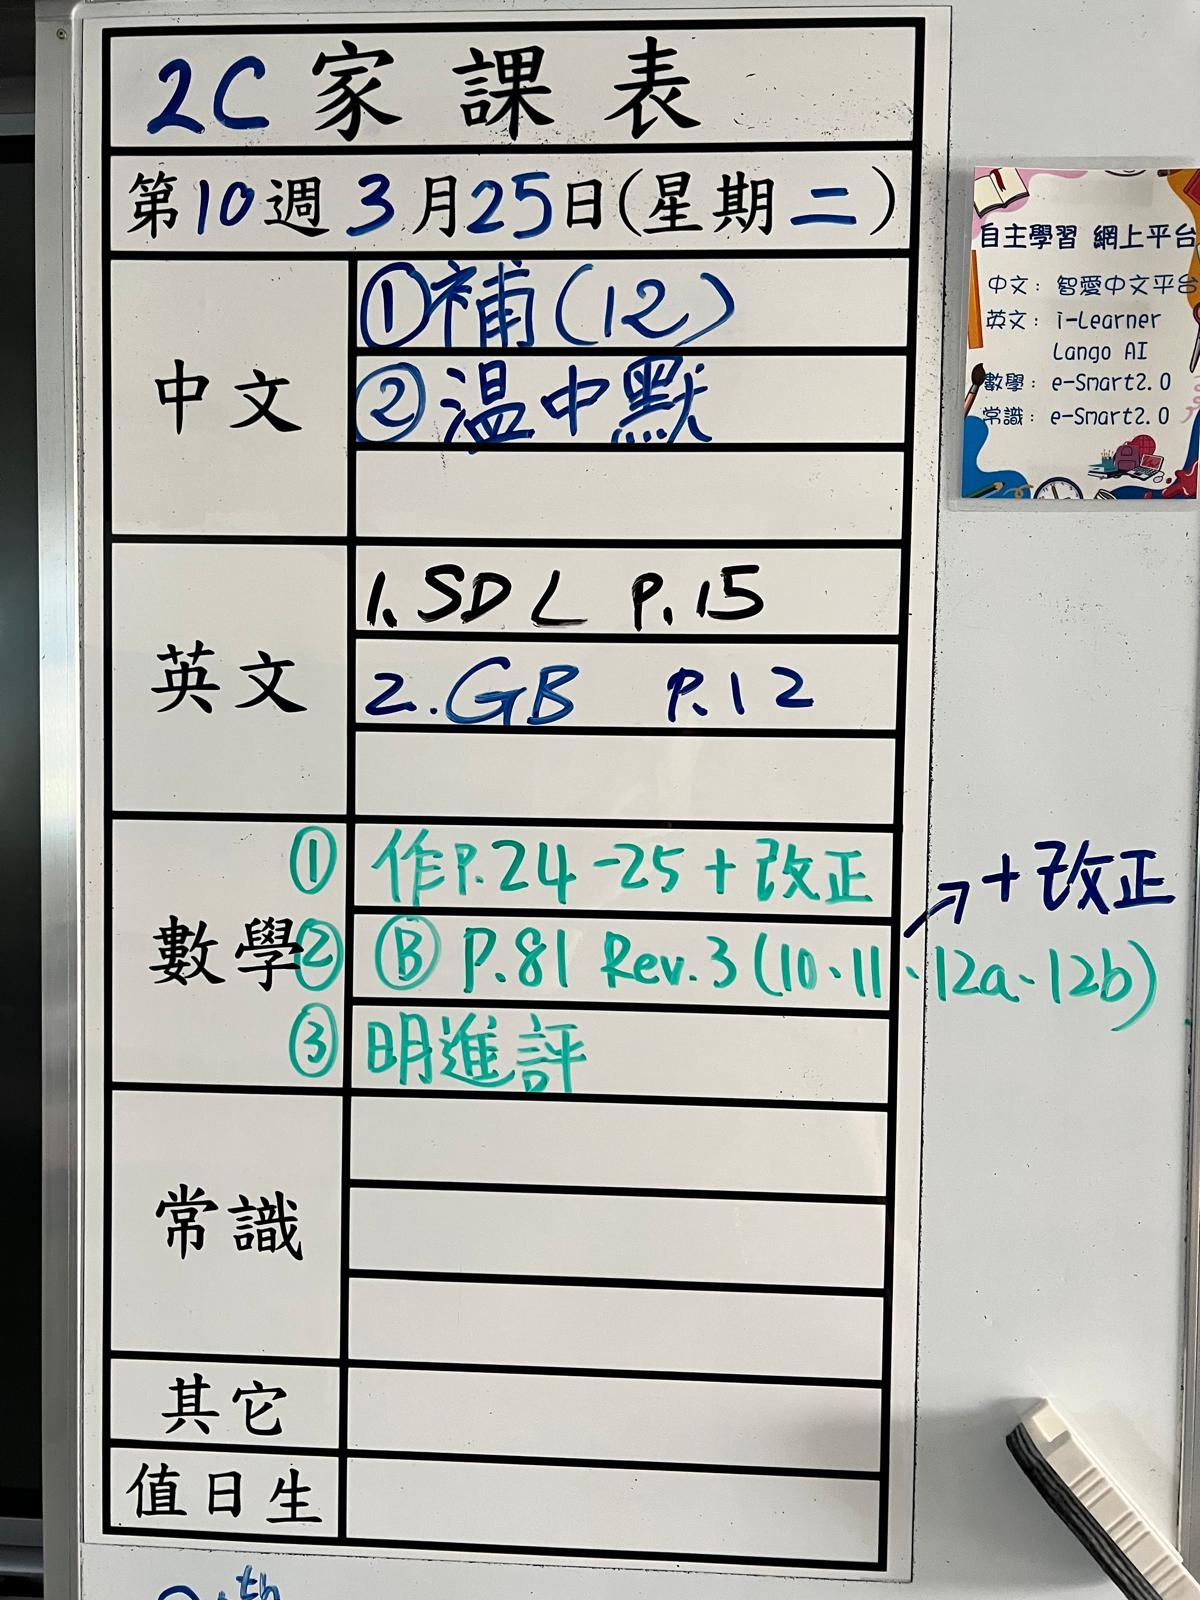 2C 家課表
第10週 3月25日(星期二)
中文
①補(12)
②温中默
英文
1.SDL P.15
2.GB P.12
數學
① 作P.24-25+改正
② Ⓑ P.81 Rev.3(10、11、12a、12b) +改正
③ 明進評
常識
其它
值日生
自主學習 網上平台
中文: 智愛中文平台
英文: i-Learner
Lango AI
數學: e-Smart2.0
常識: e-Smart2.0